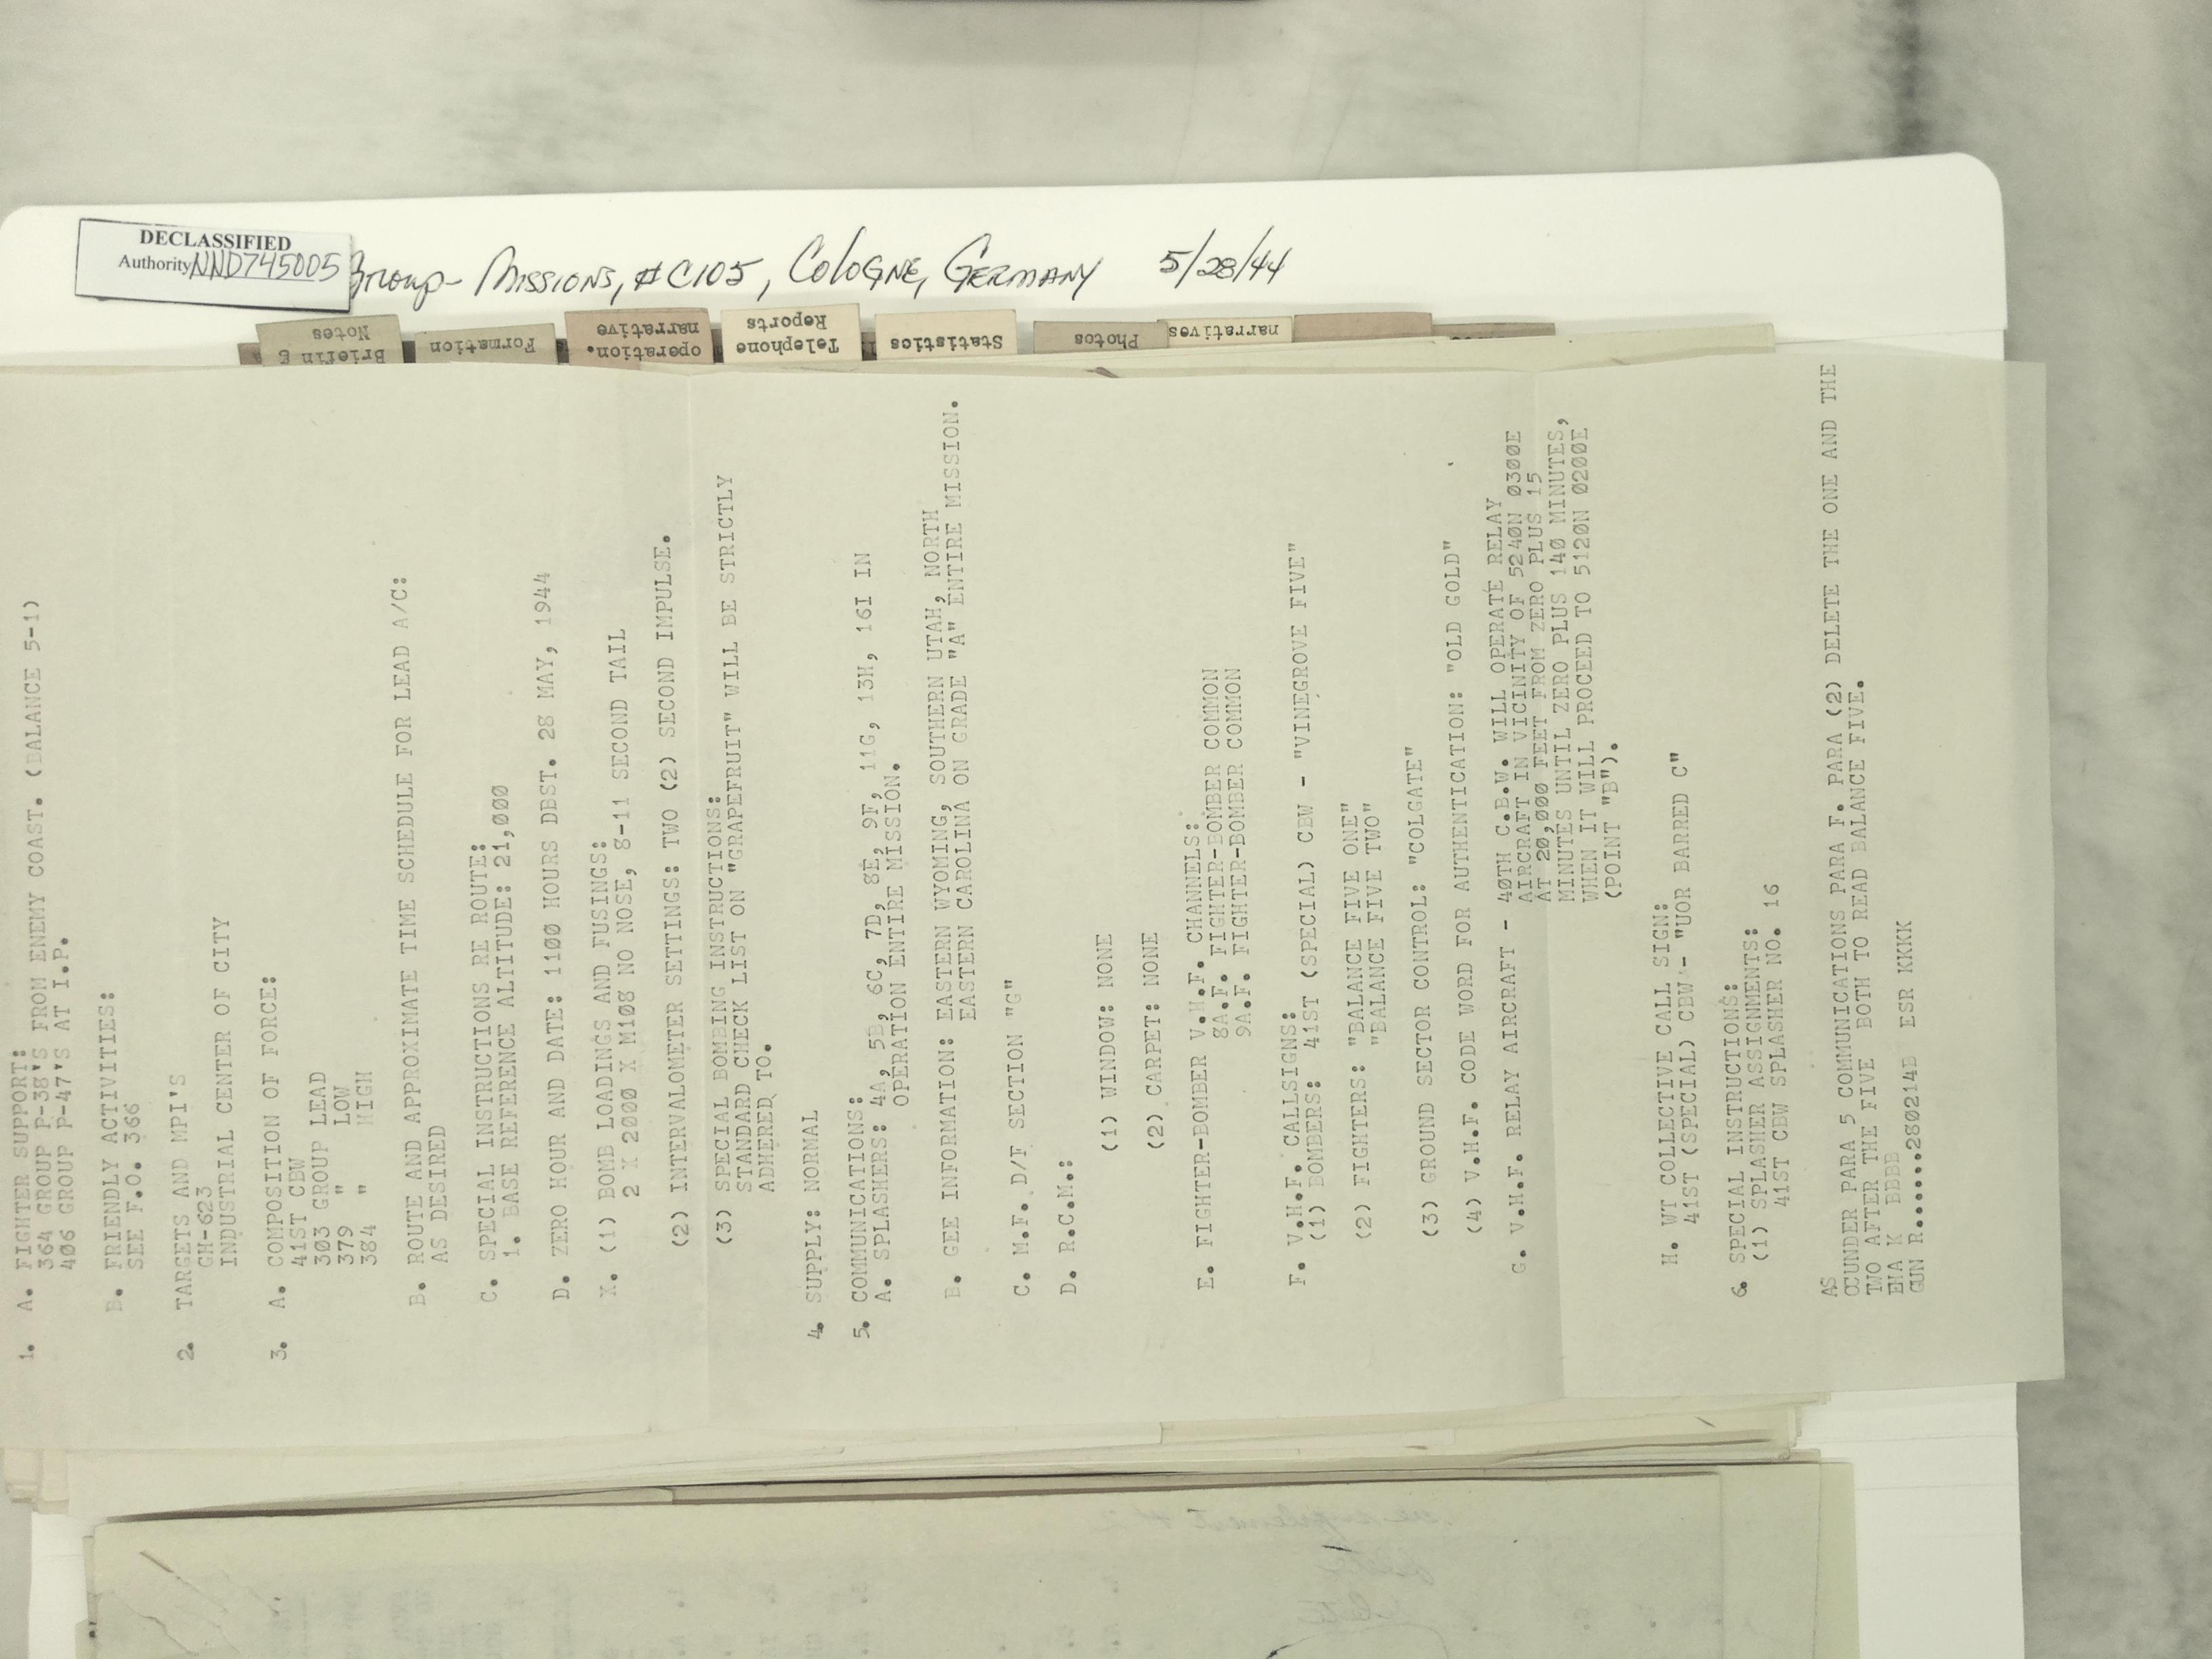 DECLASSIFIED
Authority NND745005
Group- Missions, #C105, Cologne, Germany 5/28/44
Briefing
Notes
Formation
operation.
narrative
Telephone
Reports
Statistics
Photos
narratives
1. A. FIGHTER SUPPORT:
364 GROUP P-38'S FROM ENEMY COAST. (BALANCE 5-1)
406 GROUP P-47'S AT I.P.
B. FRIENDLY ACTIVITIES:
SEE F.O. 366
2. TARGETS AND MPI'S
GH-623
INDUSTRIAL CENTER OF CITY
3. A. COMPOSITION OF FORCE:
41ST CBW
303 GROUP LEAD
379 " LOW
384 " HIGH
B. ROUTE AND APPROXIMATE TIME SCHEDULE FOR LEAD A/C:
AS DESIRED
C. SPECIAL INSTRUCTIONS RE ROUTE:
1. BASE REFERENCE ALTITUDE: 21,000
D. ZERO HOUR AND DATE: 1100 HOURS DBST. 28 MAY, 1944
X. (1) BOMB LOADINGS AND FUSINGS:
2 X 2000 X M108 NO NOSE, 8-11 SECOND TAIL
(2) INTERVALOMETER SETTINGS: TWO (2) SECOND IMPULSE.
(3) SPECIAL BOMBING INSTRUCTIONS:
STANDARD CHECK LIST ON "GRAPEFRUIT" WILL BE STRICTLY
ADHERED TO.
4. SUPPLY: NORMAL
5. COMMUNICATIONS:
A. SPLASHERS: 4A, 5B, 6C, 7D, 8E, 9F, 11G, 13H, 16I IN
OPERATION ENTIRE MISSION.
B. GEE INFORMATION: EASTERN WYOMING, SOUTHERN UTAH, NORTH
EASTERN CAROLINA ON GRADE "A" ENTIRE MISSION.
C. M.F. D/F SECTION "G"
D. R.C.M.:
(1) WINDOW: NONE
(2) CARPET: NONE
E. FIGHTER-BOMBER V.H.F. CHANNELS:
8A.F. FIGHTER-BOMBER COMMON
9A.F. FIGHTER-BOMBER COMMON
F. V.H.F. CALLSIGNS:
(1) BOMBERS: 41ST (SPECIAL) CBW - "VINEGROVE FIVE"
(2) FIGHTERS: "BALANCE FIVE ONE"
"BALANCE FIVE TWO"
(3) GROUND SECTOR CONTROL: "COLGATE"
(4) V.H.F. CODE WORD FOR AUTHENTICATION: "OLD GOLD"
G. V.H.F. RELAY AIRCRAFT - 40TH C.B.W. WILL OPERATE RELAY
AIRCRAFT IN VICINITY OF 5240N 0300E
AT 20,000 FEET FROM ZERO PLUS 15
MINUTES UNTIL ZERO PLUS 140 MINUTES,
WHEN IT WILL PROCEED TO 5120N 0200E
(POINT "B").
H. WT COLLECTIVE CALL SIGN:
41ST (SPECIAL) CBW - "UOR BARRED C"
6. SPECIAL INSTRUCTIONS:
(1) SPLASHER ASSIGNMENTS:
41ST CBW SPLASHER NO. 16
AS
CCUNDER PARA 5 COMMUNICATIONS PARA F. PARA (2) DELETE THE ONE AND THE
TWO AFTER THE FIVE BOTH TO READ BALANCE FIVE.
EHA K BBBB
GUN R.......280214B ESR KKKK